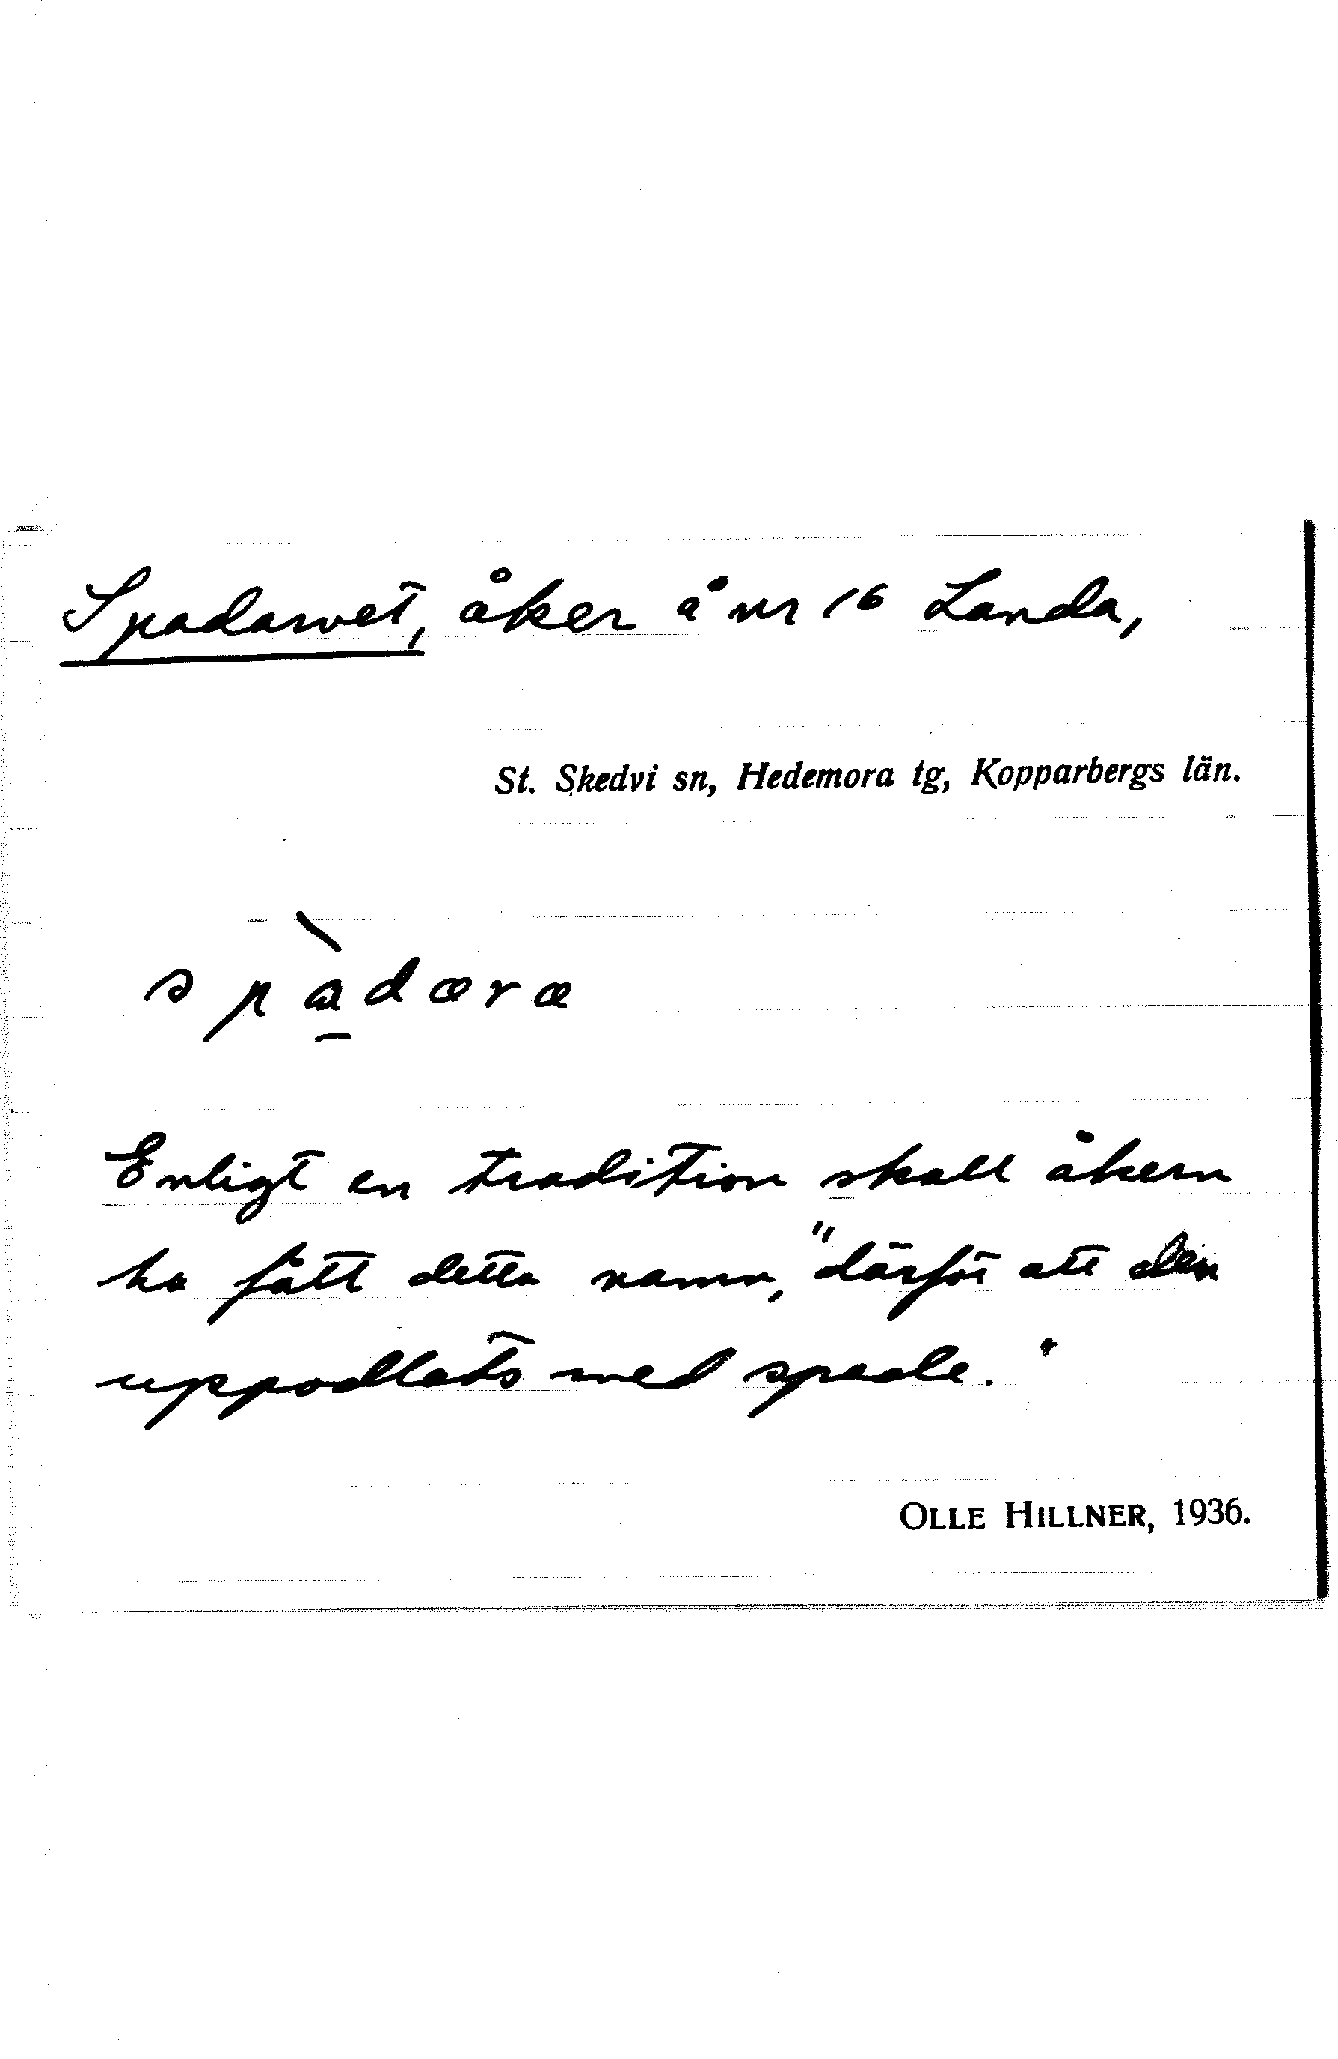 Spadarvet, åker å nr 16 Landa,
St. Skedvi sn, Hedemora tg, Kopparbergs län.
spà̱dæræ
Enligt en tradition skall åkern
ha fått detta namn, "därför att den
uppodlats med spade."
OLLE HILLNER, 1936.